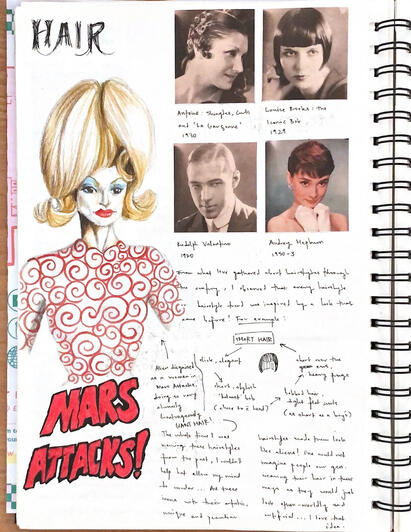 HAIR
Antoine: Shingles, Curls
and 'La Garçonne'
1930
Louise Brooks: the
Iconic Bob,
1928
Rudolph Valentino
1920
Audrey Hepburn
1950-3
From what I've gathered about hairstyles through
the century, I observed that every hairstyle
or hairstyle trend was inspired by a look that
came before! For example:
SHORT HAIR
slick, elegant
short, stylish
bob cut
(close to head)
short over the
ears,
heavy fringe
bobbed hair,
tight
(as short as a boy's)
Alien disguised
as a woman in
Mars Attacks,
doing it very
almost
GIANT HAIR!
MARS
ATTACKS!
The whole time I was
viewing these hairstyles
from the past, I couldn't
help but allow my mind
to wander... Are these
icons with their artistic,
unique and peculiar
hairstyles made them look
like aliens! One could not
imagine people our gen.
wearing their hair in these
ways as they would just
look
artificial... I love that
idea.